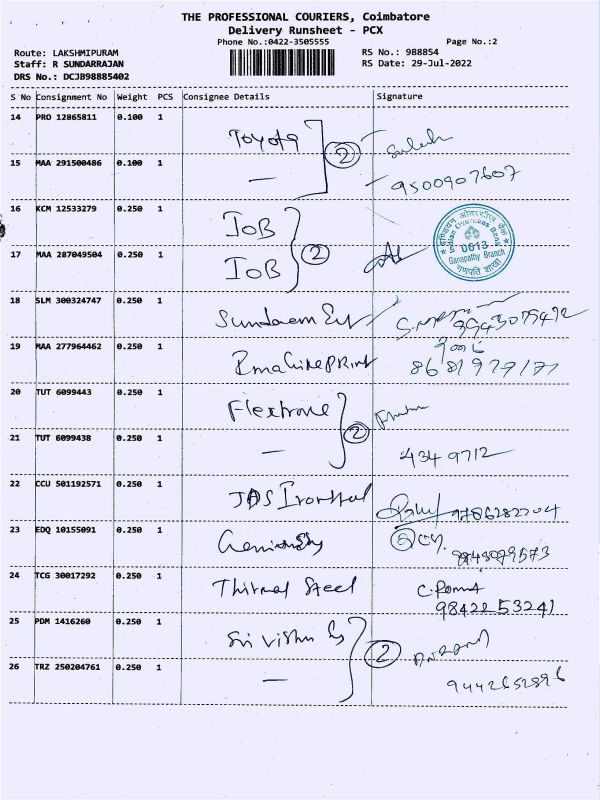 THE PROFESSIONAL COURIERS, Coimbatore
Delivery Runsheet - PCX
Phone No.:0422-3505555 Page No.:2
Route: LAKSHMIPURAM RS No.: 988854
Staff: R SUNDARRAJAN RS Date: 29-Jul-2022
DRS No.: DCJB98885402
S No Consignment No Weight PCS Consignee Details Signature
14 PRO 12865811 0.100 1 Toyota
15 MAA 291500486 0.100 1 — 2 9500907607
16 KCM 12533279 0.250 1 IOB
17 MAA 287049504 0.250 1 IOB 2
इण्डियन ओवरसीज़ बैंक
Indian Overseas Bank
0613
Ganapathy Branch
गणपति शाखा
18 SLM 300324747 0.250 1
19 MAA 277964462 0.250 1
20 TUT 6099443 0.250 1
21 TUT 6099438 0.250 1 — 2 434 9712
22 CCU 501192571 0.250 1 JAS
23 EDQ 10155091 0.250 1
24 TCG 30017292 0.250 1 Thirmal Steel
9842253241
25 PDM 1416260 0.250 1 Sri Vishnu
26 TRZ 250204761 0.250 1 — 2 9442652896